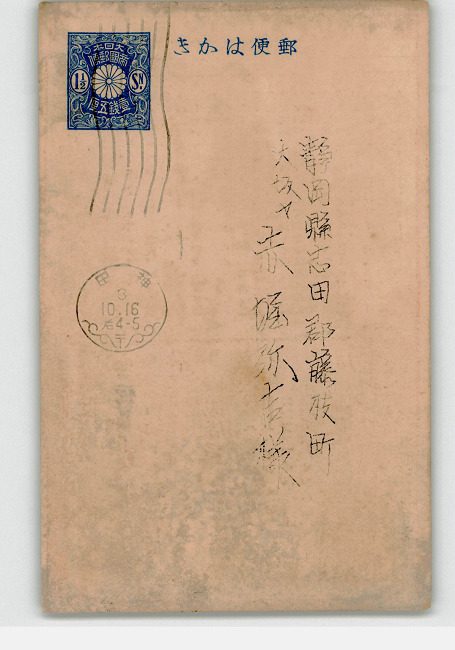 郵便はかき
大日本
帝國郵便
1½ Sn
壹銭五厘
静岡縣志田郡藤枝町
大坂ヤ
赤堀弥吉様
神田
3
10.16
后4-5